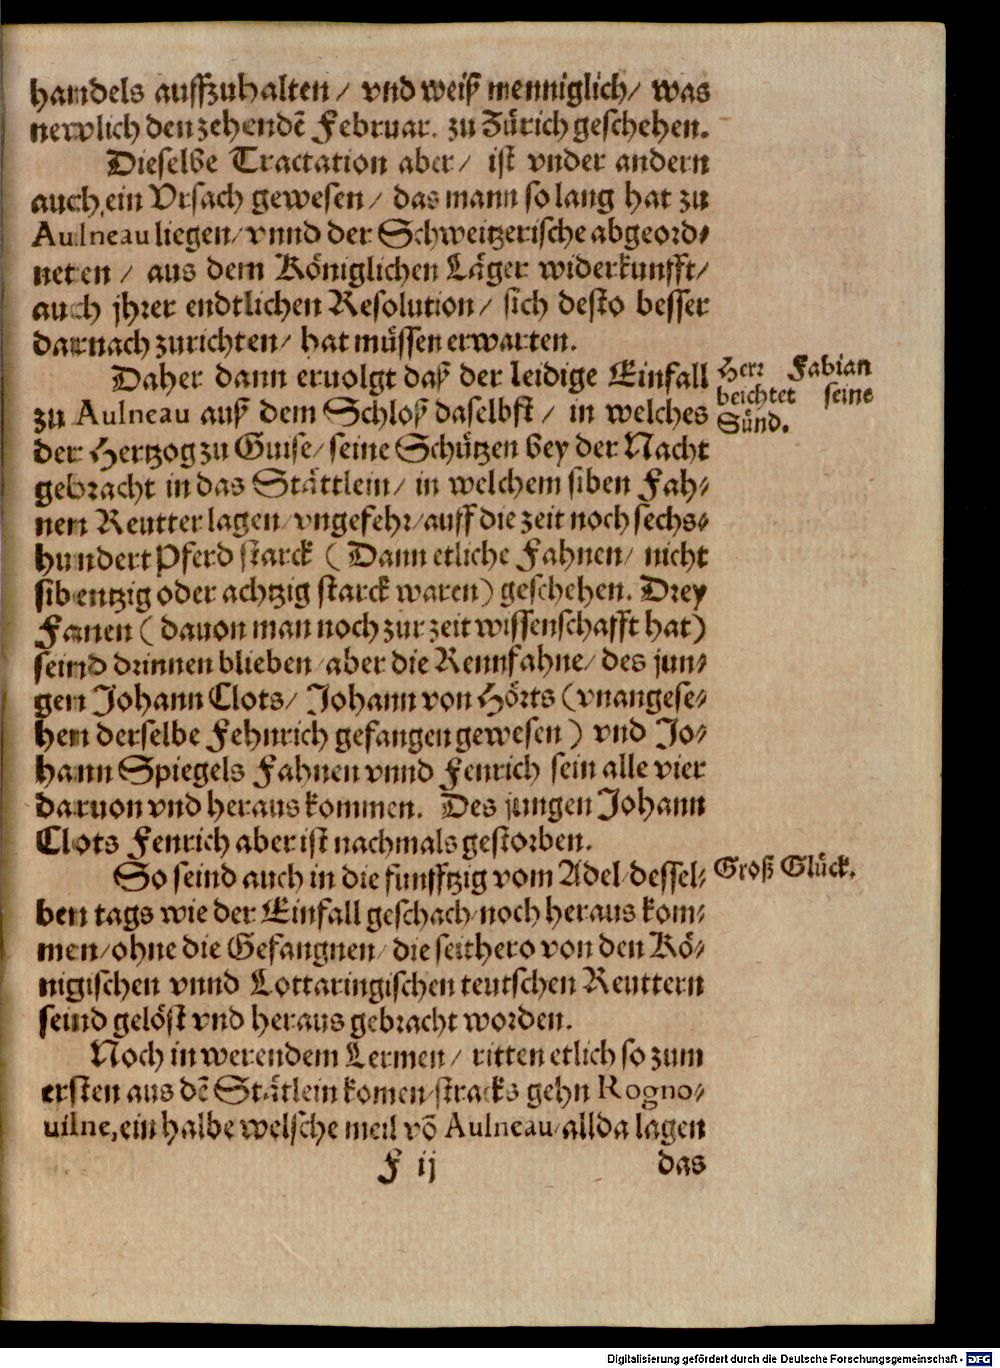 handels auffzuhalten / vnd weiß menniglich / was
newlich den zehendẽ Februar. zu Zürich geschehen.
Dieselbe Tractation aber / ist vnder andern
auch ein Vrsach gewesen / das mann so lang hat zu
Aulneau liegen / vnnd der Schweitzerische abgeord⸗
neten / aus dem Königlichen Läger widerkunfft /
auch jhrer endtlichen Resolution / sich desto besser
darnach zurichten / hat müssen erwarten.
Daher dann eruolgt daß der leidige Einfall
zu Aulneau auß dem Schloß daselbst / in welches
der Hertzog zu Guise / seine Schützen bey der Nacht
gebracht in das Stättlein / in welchem siben Fah⸗
nen Reutter lagen / vngefehr / auff die zeit noch sechs⸗
hundert Pferd starck ( Dann etliche Fahnen / nicht
sibentzig oder achtzig starck waren ) geschehen. Drey
Fanen ( dauon man noch zur zeit wissenschafft hat )
seind drinnen blieben / aber die Rennfahne / des jun⸗
gen Johann Clots / Johann von Hörts ( vnangese⸗
hen derselbe Fehnrich gefangen gewesen ) vnd Jo⸗
hann Spiegels Fahnen vnnd Fenrich sein alle vier
daruon vnd heraus kommen. Des jungen Johann
Clots Fenrich aber ist nachmals gestorben.
So seind auch in die funfftzig vom Adel / dessel⸗
ben tags wie der Einfall geschach / noch heraus kom⸗
men / ohne die Gefangnen / die seithero von den Kö⸗
nigischen vnnd Lottaringischen teutschen Reuttern
seind gelöst vnd heraus gebracht worden.
Noch in werendem Lermen / ritten etlich so zum
ersten aus dẽ Stätlein komen / stracks gehn Rogno⸗
uilne, ein halbe welsche meil võ Aulneau / allda lagen
F ij
das
Herr Fabian
beichtet seine
Sünd.
Groß Glück.
Digitalisierung gefördert durch die Deutsche Forschungsgemeinschaft - DFG